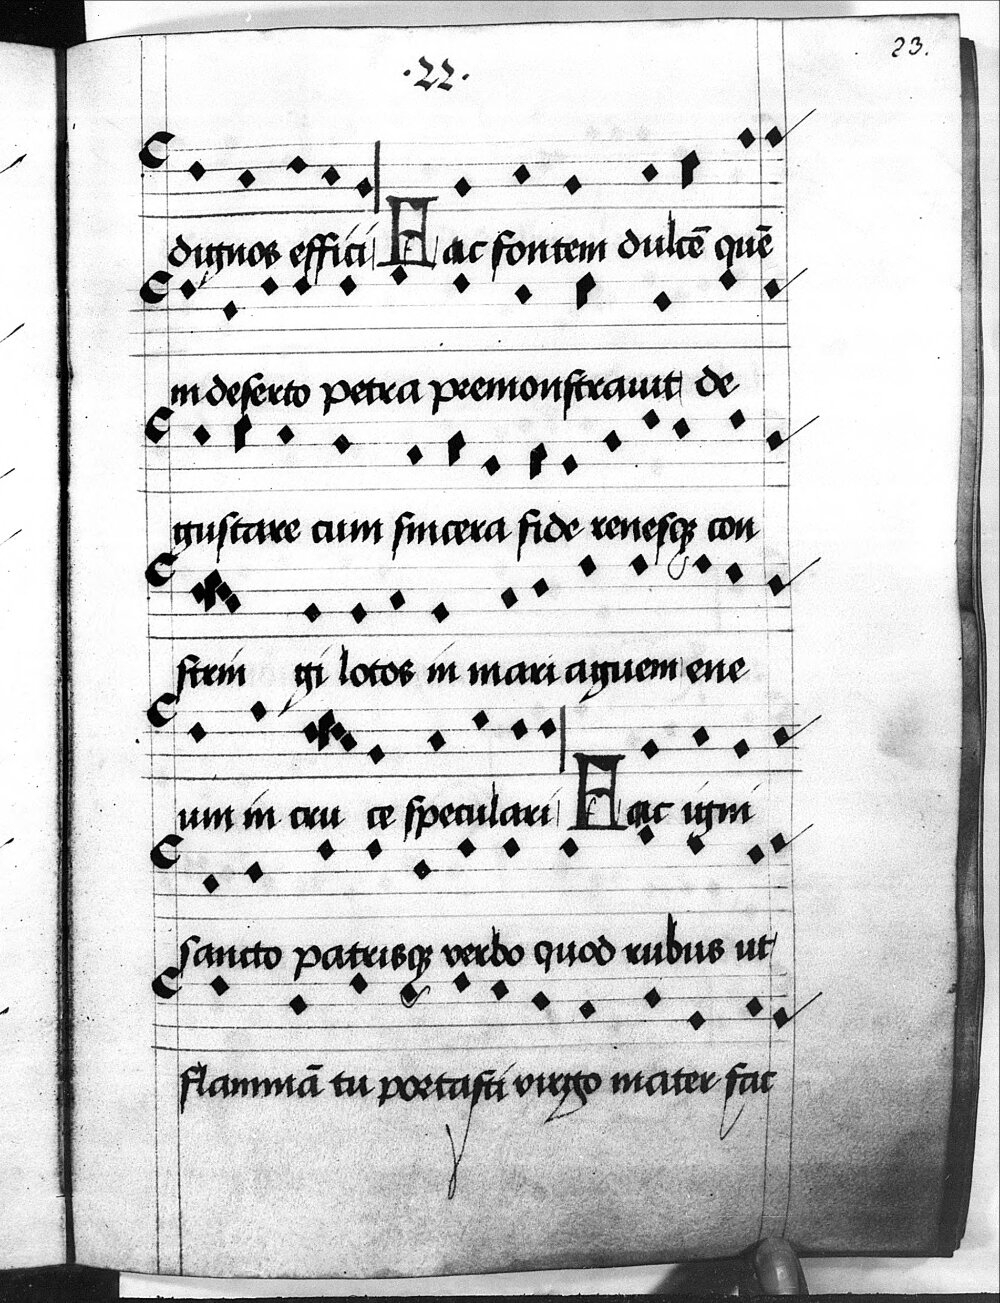 23.
·22·
dignos effici Fac fontem dulcē quē
in deserto petra premonstrauit de
gustare cum sincera fide renesqꝫ con
strin gi lotos in mari aguem ene
um in cru ce speculari Fac igni
sancto patrisqꝫ verbo quod rubus ut
flammā tu portasti virgo mater fac